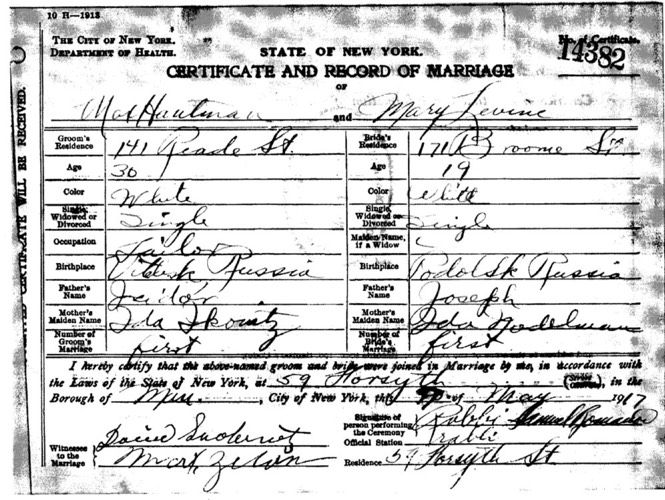 10 H—1913
THE CITY OF NEW YORK.
DEPARTMENT OF HEALTH.
STATE OF NEW YORK.
No. of Certificate.
14382
CERTIFICATE AND RECORD OF MARRIAGE
OF
Max Hautman and Mary Levine
Groom's Residence 141 Reade St. Bride's Residence 171 Broome St
Age 30 Age 19
Color White Color White
Single, Widowed or Divorced Single Single, Widowed or Divorced Single
Occupation Tailor Maiden Name, if a Widow
Birthplace Vitebsk Russia Birthplace Podolsk Russia
Father's Name Isidor Father's Name Joseph
Mother's Maiden Name Ida Mother's Maiden Name Ida Nodelman
Number of Groom's Marriage first Number of Bride's Marriage first
I hereby certify that the above-named groom and bride were joined in Marriage by me, in accordance with
the Laws of the State of New York, at 59 Forsyth, in the
Borough of Man., City of New York, this of May 1917
Signature of person performing the Ceremony Rabbi Samuel
Official Station rabbi
Witnesses to the Marriage David
Max
Residence 59 Forsyth St.
CERTIFICATE WILL BE RECEIVED.